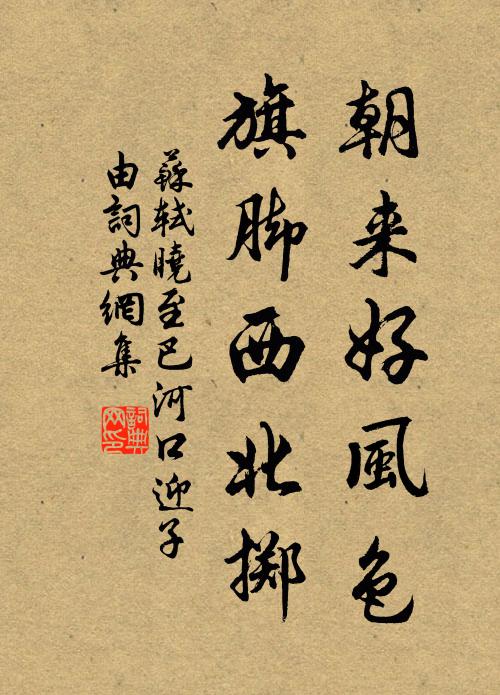 朝来好風色
旗脚西北擲
蘇軾曉至巴河口迎子
由詞典網集
詞典
网印